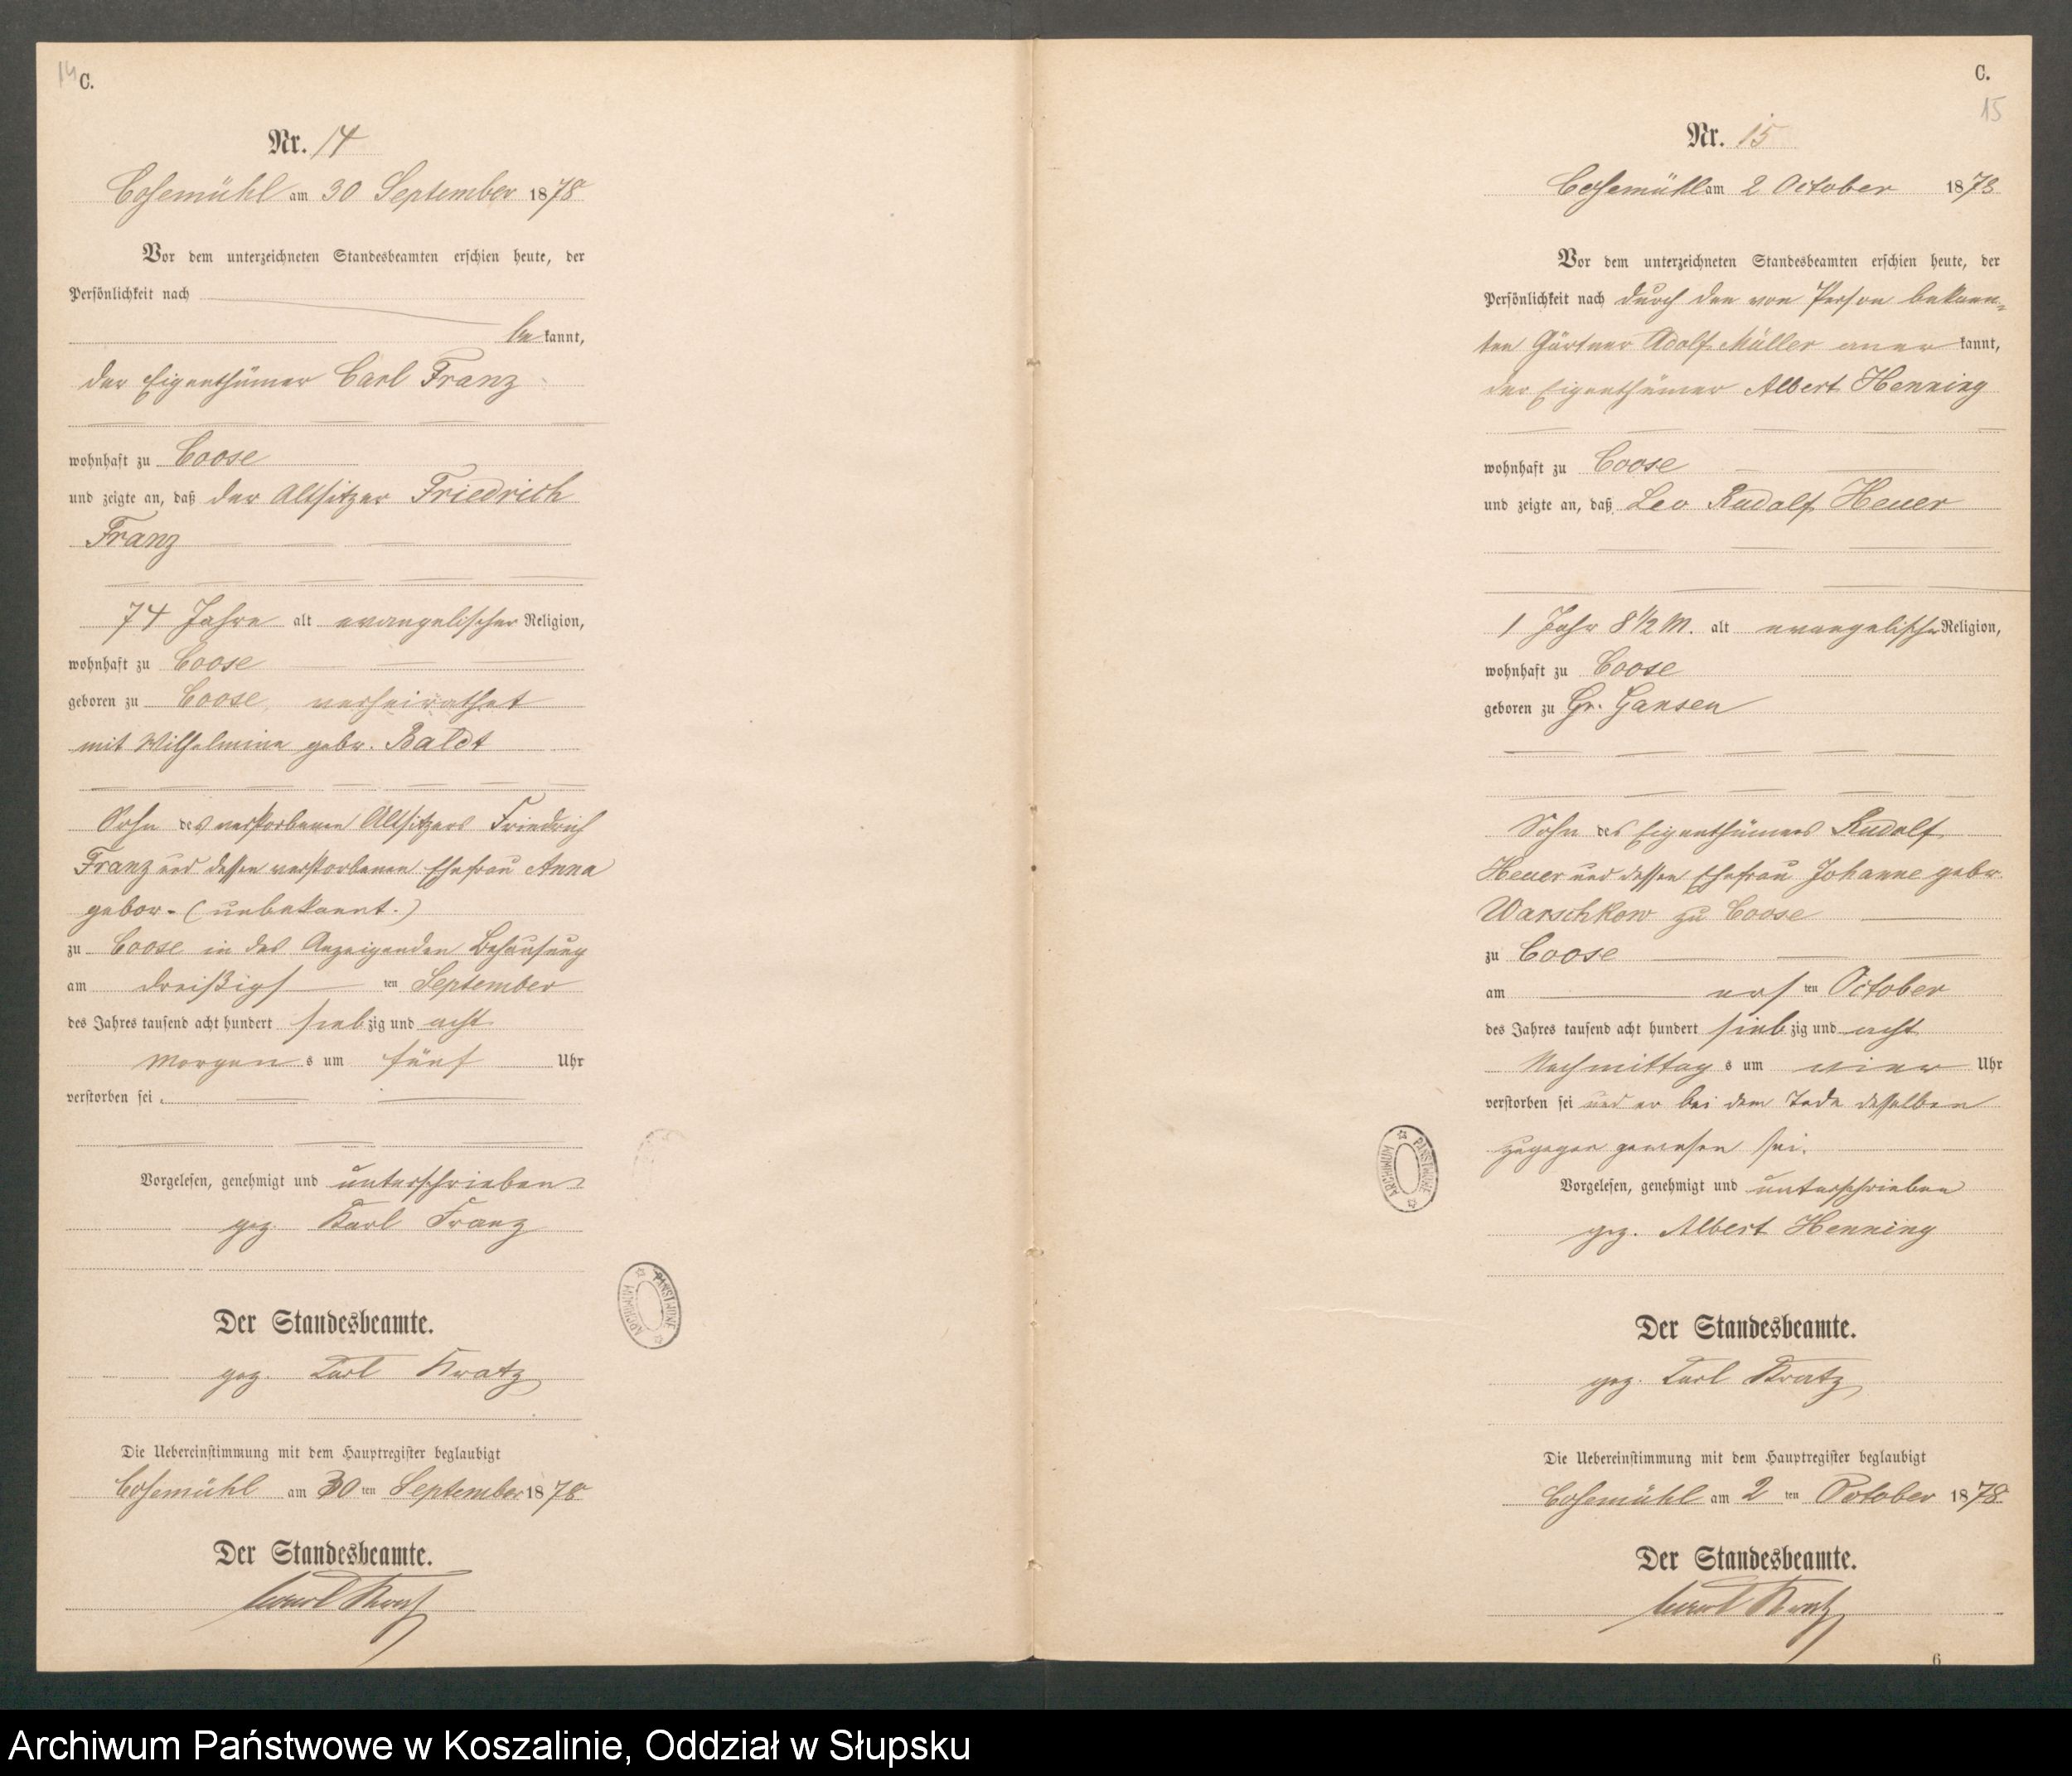 14
C.
Nr. 14
Cosemühl am 30 September 1878
Vor dem unterzeichneten Standesbeamten erschien heute, der
Persönlichkeit nach
bekannt,
der Eigenthümer Carl Franz
wohnhaft zu Coose
und zeigte an, daß der Altsitzer Friedrich
Franz
74 Jahre alt evangelischer Religion,
wohnhaft zu Coose
geboren zu Coose, verheirathet
mit Wilhelmine gebor. Baldt
Sohn des verstorbenen Altsitzers Friedrich
Franz und dessen verstorbenen Ehefrau Anna
gebor. (unbekannt.)
zu Coose in des Anzeigenden Behausung
am dreißigsten September
des Jahres tausend acht hundert siebzig und acht
Morgens um fünf Uhr
verstorben sei.
Vorgelesen, genehmigt und unterschrieben
gez. Karl Franz
Der Standesbeamte.
gez. Carl Kratz
Die Uebereinstimmung mit dem Hauptregister beglaubigt
Cosemühl am 30ten September 1878
Der Standesbeamte.
Carl Kratz
ARCHIWUM PAŃSTWOWE
C.
15
Nr. 15
Cosemühl am 2 October 1878
Vor dem unterzeichneten Standesbeamten erschien heute, der
Persönlichkeit nach durch den von Person bekann-
ten Gärtner Adolf Müller anerkannt,
der Eigenthümer Albert Henning
wohnhaft zu Coose
und zeigte an, daß Leo Rudolf Heuer
1 Jahr 8 1/2 M. alt evangelischer Religion,
wohnhaft zu Coose
geboren zu Gr. Gansen
Sohn des Eigenthümers Rudolf
Heuer und dessen Ehefrau Johanne gebor.
Warschkow zu Coose
zu Coose
am ersten October
des Jahres tausend acht hundert siebzig und acht
Nachmittags um vier Uhr
verstorben sei und er bei dem Tode desselben
zugegen gewesen sei.
Vorgelesen, genehmigt und unterschrieben
gez. Albert Henning
Der Standesbeamte.
gez. Carl Kratz
Die Uebereinstimmung mit dem Hauptregister beglaubigt
Cosemühl am 2ten October 1878
Der Standesbeamte.
Carl Kratz
ARCHIWUM PAŃSTWOWE
6
Archiwum Państwowe w Koszalinie, Oddział w Słupsku